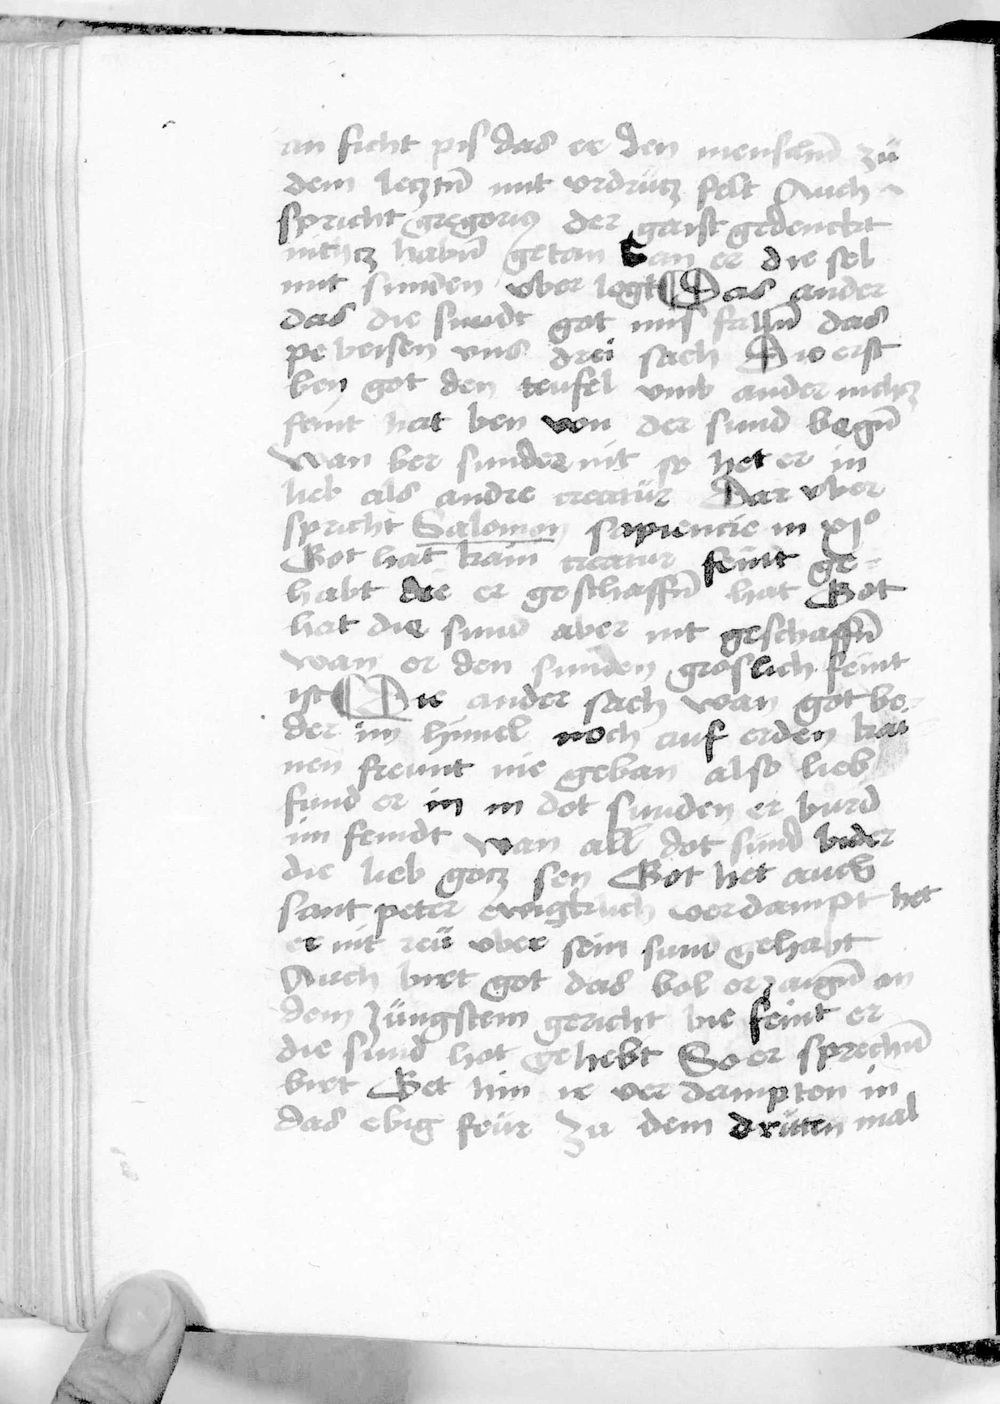 an ficht pis das er den menschñ zü
dem lecztñ mit vrdrücz felt Auch
spricht gregorius der geist gedenckt
nichcz habñ getan ban er die sel
mit sunden vber legt Das ander
das die sundt got mis falñ das
pe beisen vns drei sach Die erst
ben got den teufel vmb ander nichcz
feint hat ben von der sund begñ
wan ber sunder nit so het er in
lieb als andre creatür Dar vber
spricht Salomon sapiencie in xjº
Got hat kain creatur feint ge-
habt die er geschaffñ hat Got
hat die sund aber nit geschaffñ
wan er den sunden groslich feint
ist Die ander sach wan got be-
der im himel noch auf erden kai
nen freunt nie geban also lieb
fund er in in dot sunden er burd
im feindt wan all dot sünd bider
die lieb gocz sen Got het auch
sant peter ewigklich verdampt het
er nit reü vber sein sund gehabt
Auch birt got das bol erzaigñ an
dem Jüngstem gericht bie feint er
die sund hot gehebt So er sprechñ
birt Get hin ir ver dampten in
das ebig feür Zu dem dritten mal